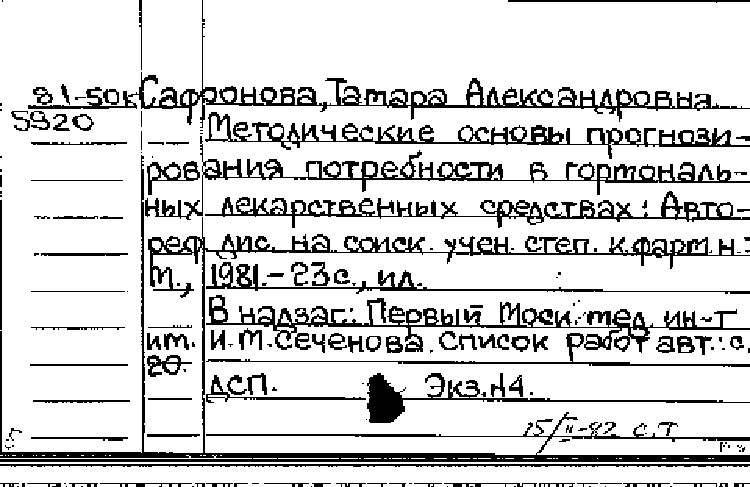 81-50к Сафронова, Тамара Александровна
5920 Методические основы прогнози-
рования потребности в гортональ-
ных лекарственных средствах: Авто-
реф. дис. на соиск. учен. степ. к.фарм.н.:
М., 1981.-23с., ил.
В надзаг.: Первый Моск. мед. ин-т
им. И.М.Сеченова. Список работ авт.: с.
20.
ДСП. Экз.№4.
15/II-82 С.Т